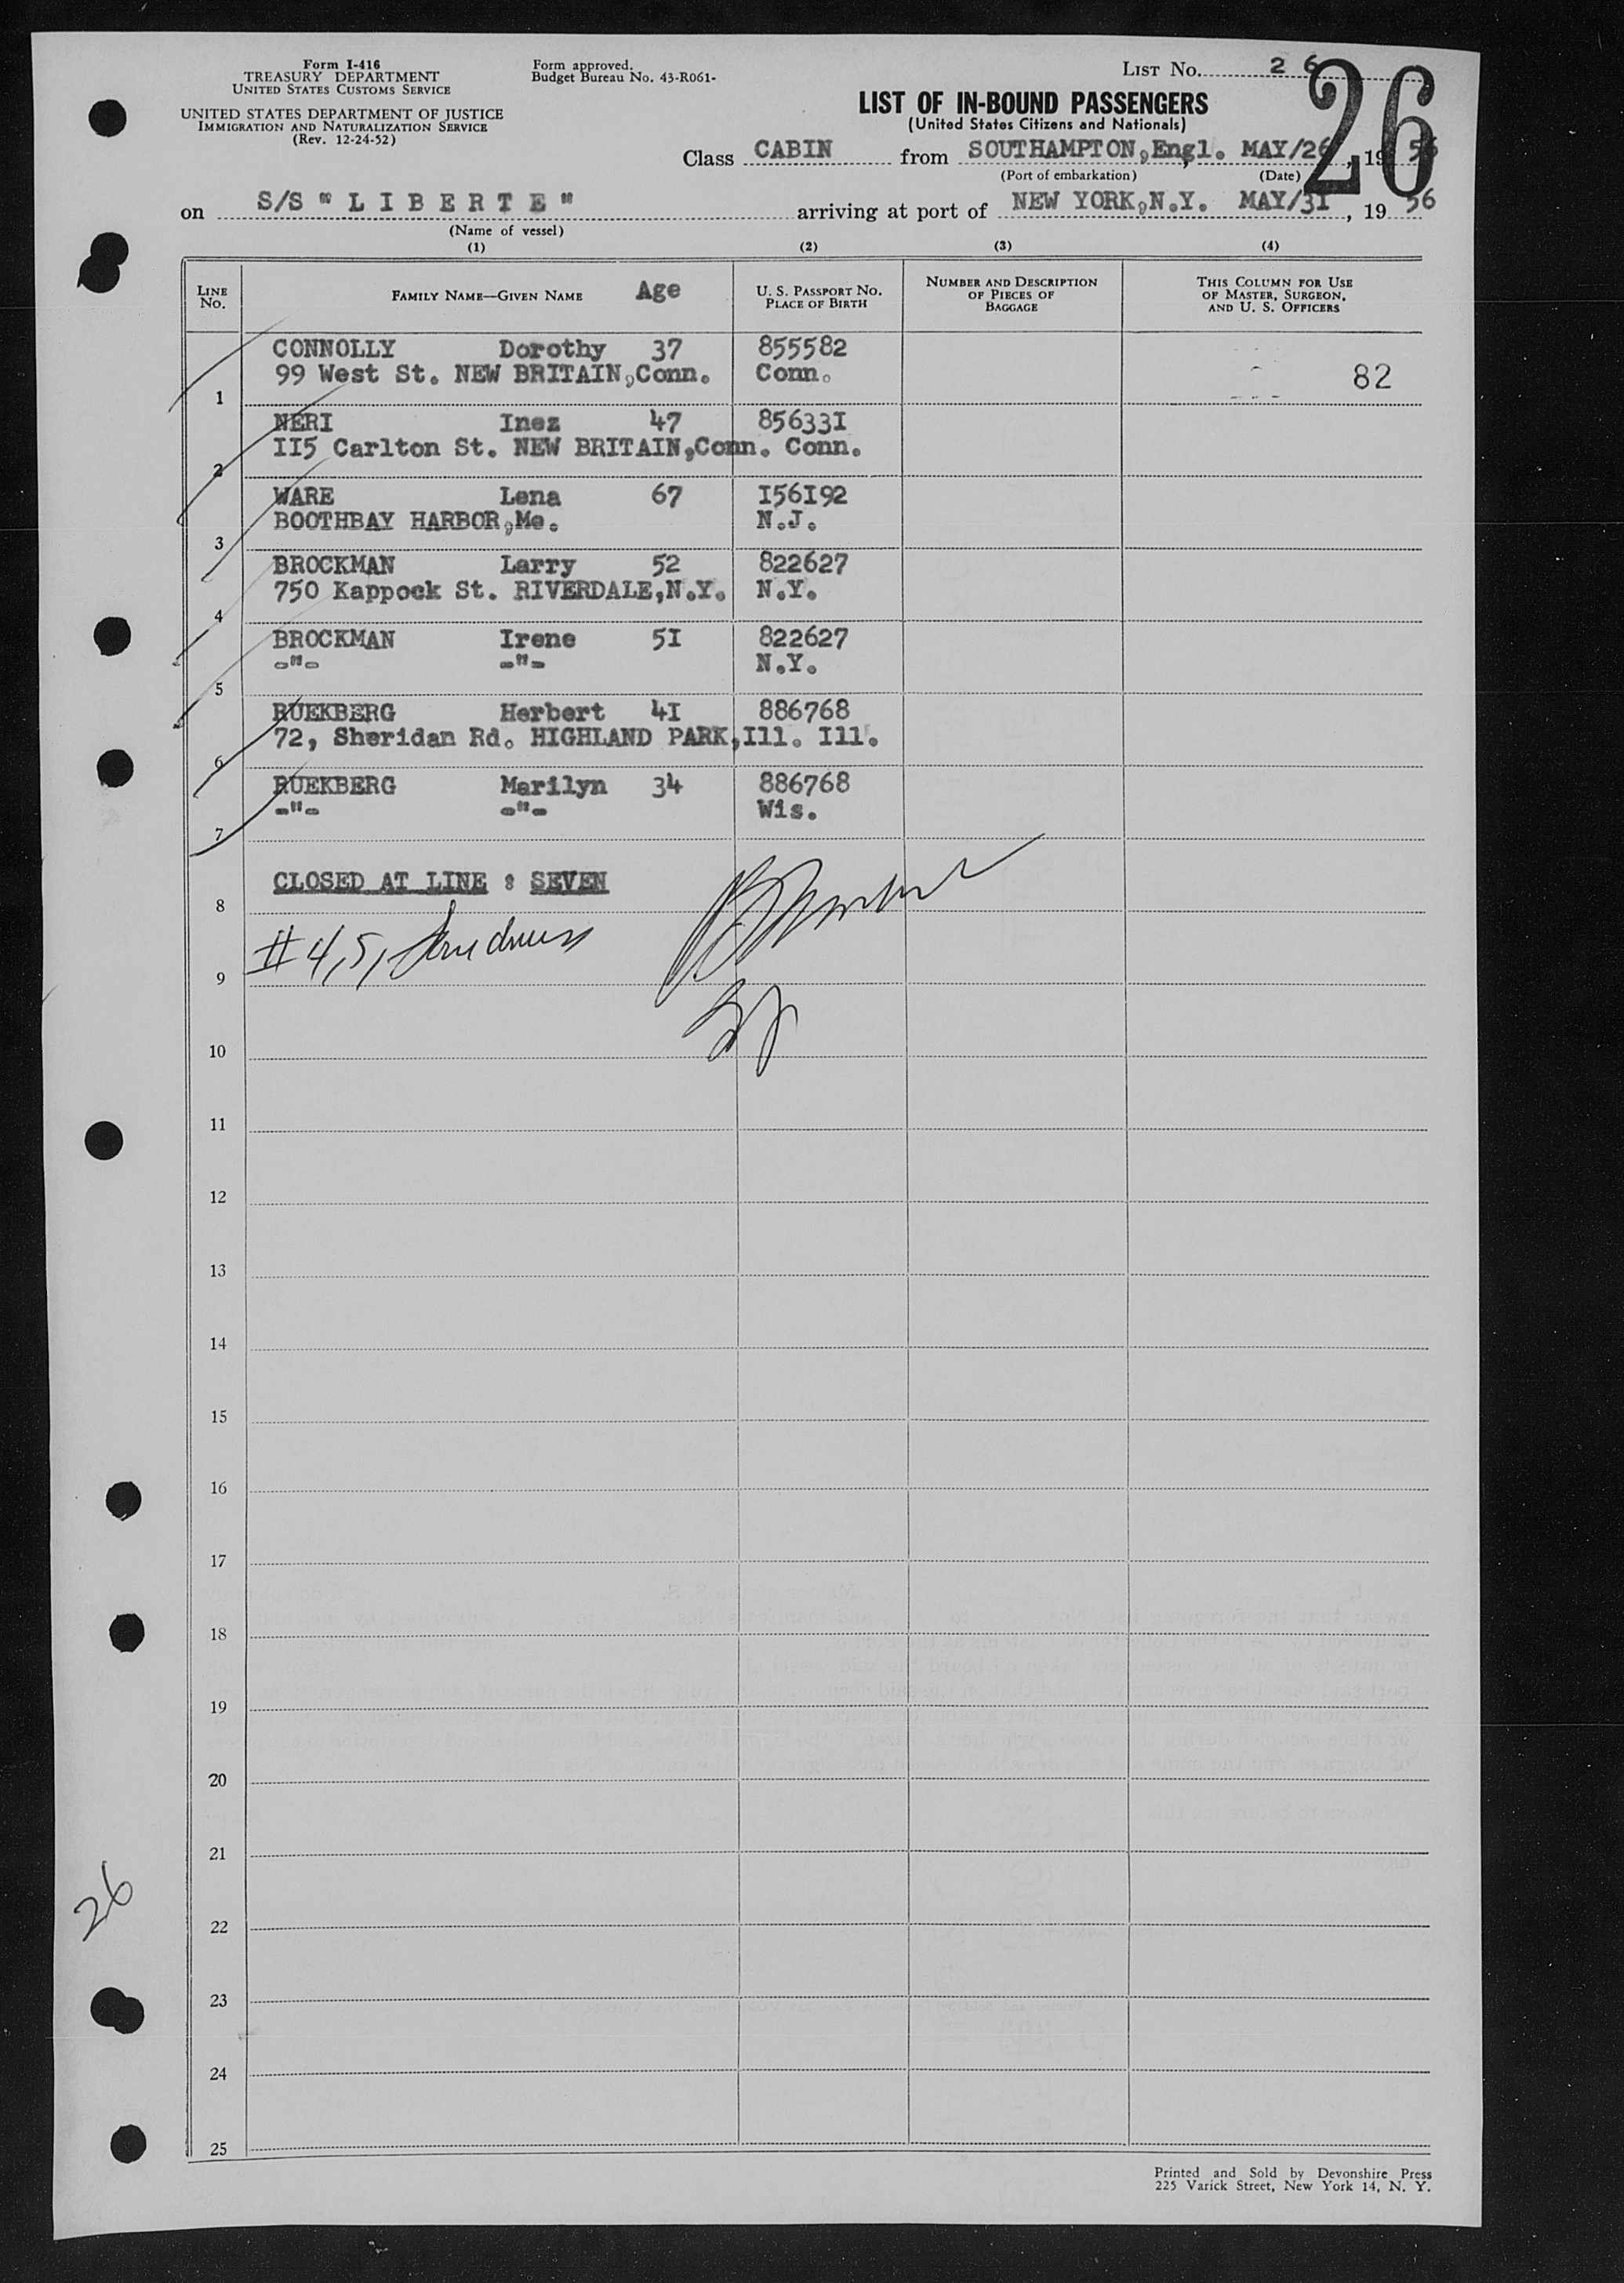 Form I-416
TREASURY DEPARTMENT
UNITED STATES CUSTOMS SERVICE
UNITED STATES DEPARTMENT OF JUSTICE
IMMIGRATION AND NATURALIZATION SERVICE
(Rev. 12-24-52)
Form approved.
Budget Bureau No. 43-R061-
LIST No. 2 6
26
LIST OF IN-BOUND PASSENGERS
(United States Citizens and Nationals)
Class CABIN from SOUTHAMPTON,Engl. MAY/26, 1956
(Port of embarkation) (Date)
on S/S " L I B E R T E " arriving at port of NEW YORK,N.Y. MAY/3I, 19 56
(Name of vessel)
(1) (2) (3) (4)
LINE No. FAMILY NAME—GIVEN NAME Age U. S. PASSPORT No. PLACE OF BIRTH NUMBER AND DESCRIPTION OF PIECES OF BAGGAGE THIS COLUMN FOR USE OF MASTER, SURGEON, AND U. S. OFFICERS
CONNOLLY Dorothy 37 855582
99 West St. NEW BRITAIN,Conn. Conn. 82
1
NERI Inez 47 85633I
II5 Carlton St. NEW BRITAIN,Conn. Conn.
2
WARE Lena 67 I56I92
BOOTHBAY HARBOR,Me. N.J.
3
BROCKMAN Larry 52 822627
750 Kappock St. RIVERDALE,N.Y. N.Y.
4
BROCKMAN Irene 5I 822627
-"- -"- N.Y.
5
RUEKBERG Herbert 4I 886768
72, Sheridan Rd. HIGHLAND PARK,Ill. Ill.
6
RUEKBERG Marilyn 34 886768
-"- -"- Wis.
7
CLOSED AT LINE : SEVEN
8
#4,5,
9
10
11
12
13
14
15
16
17
18
19
20
21
26
22
23
24
25
Printed and Sold by Devonshire Press
225 Varick Street, New York 14, N. Y.